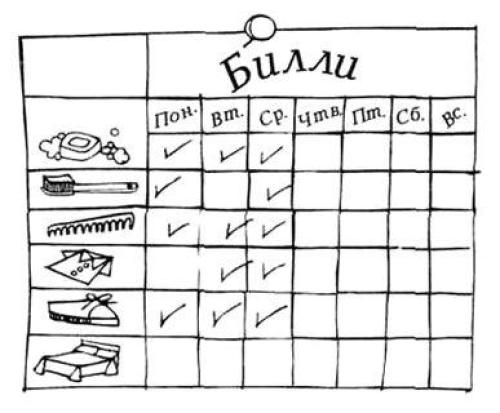 Билли
Пон. Вт. Ср. Чтв. Пт. Сб. Вс.